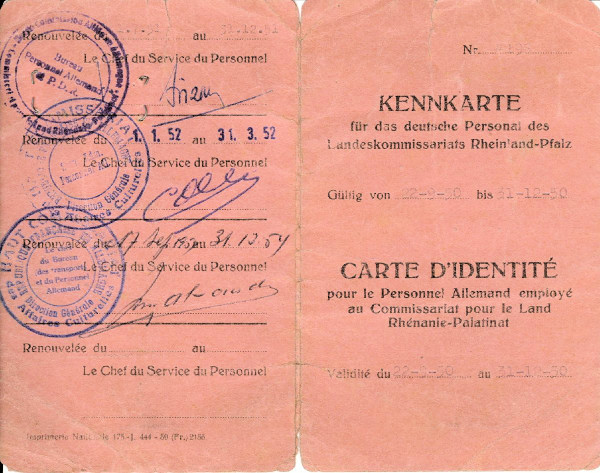 Renouvelée du au 31.12.51
Le Chef du Service du Personnel
Bureau
Personnel Allemand
Renouvelée du 1. 1. 52 au 31. 3. 52
Le Chef du Service du Personnel
Direction Générale
Affaires Culturelles
Renouvelée du 17 au 31.12.54
Le Chef du Service du Personnel
HAUT
du Bureau
des Transports
et du Personnel
Allemand
Direction Générale
Affaires Culturelles
Renouvelée du au
Le Chef du Service du Personnel
Imprimerie Nationale 175-J. 444 - 50 (Fr.) 2156
Nr.
KENNKARTE
für das deutsche Personal des
Landeskommissariats Rheinland-Pfalz
Gültig von 22-9-50 bis 31-12-50
CARTE D'IDENTITÉ
pour le Personnel Allemand employé
au Commissariat pour le Land
Rhénanie-Palatinat
Validité du 22-9-50 au 31-12-50